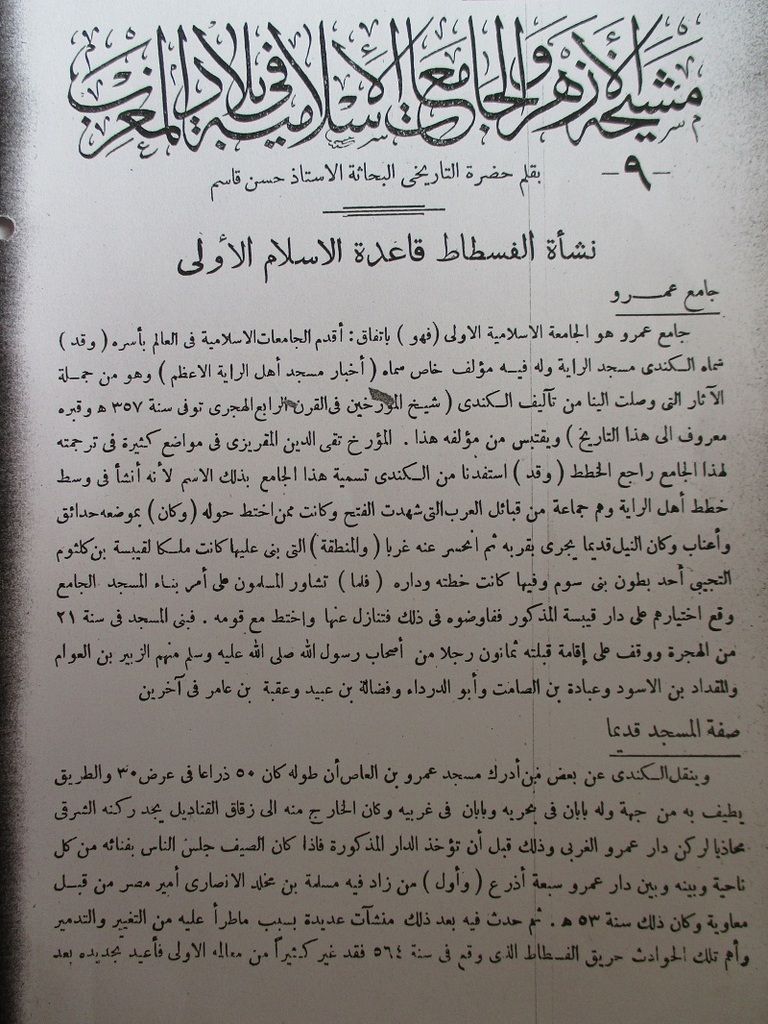 مشيخة الأزهر والجامعات الإسلامية في بلاد المغرب
-٩-
بقلم حضرة التاريخى البحاثة الاستاذ حسن قاسم
نشأة الفسطاط قاعدة الاسلام الأولى
جامع عمرو
جامع عمرو هو الجامعة الاسلامية الاولى (فهو) باتفاق: أقدم الجامعات الاسلامية فى العالم بأسره (وقد)
سماه الكندى مسجد الراية وله فيه مؤلف خاص سماه (أخبار مسجد أهل الراية الاعظم) وهو من جملة
الآثار التى وصلت الينا من تآليف الكندى (شيخ المؤرخين فى القرن الرابع الهجرى توفى سنة ٣٥٧ ه وقبره
معروف الى هذا التاريخ) ويقتبس من مؤلفه هذا . المؤرخ تقى الدين المقريزى فى مواضع كثيرة فى ترجمته
لهذا الجامع راجع الخطط (وقد) استفدنا من الكندى تسمية هذا الجامع بذلك الاسم لأنه أنشأ فى وسط
خطط أهل الراية وهم جماعة من قبائل العرب التى شهدت الفتح وكانت ممن اختط حوله (وكان) بموضعه حدائق
وأعناب وكان النيل قديما يجرى بقربه ثم انحسر عنه غربا (والمنطقة) التى بنى عليها كانت ملكا لقيسبة بن كلثوم
التجيبى أحد بطون بنى سوم وفيها كانت خطته وداره (فلما) تشاور المسلمون على أمر بناء المسجد الجامع
وقع اختيارهم على دار قيسبة المذكور ففاوضوه فى ذلك فتنازل عنها واختط مع قومه . فبنى المسجد فى سنة ٢١
من الهجرة ووقف على إقامة قبلته ثمانون رجلا من أصحاب رسول الله صلى الله عليه وسلم منهم الزبير بن العوام
والمقداد بن الاسود وعبادة بن الصامت وأبو الدرداء وفضالة بن عبيد وعقبة بن عامر فى آخرين
صفة المسجد قديما
وينقل الكندى عن بعض من أدرك مسجد عمرو بن العاص أن طوله كان ٥٠ ذراعا فى عرض ٣٠ والطريق
يطيف به من جهة وله بابان فى بحريه وبابان فى غربيه وكان الخارج منه الى زقاق القناديل يجد ركنه الشرقى
محاذيا لركن دار عمرو الغربى وذلك قبل أن تؤخذ الدار المذكورة فاذا كان الصيف جلس الناس بفنائه من كل
ناحية وبينه وبين دار عمرو سبعة أذرع (وأول) من زاد فيه مسلمة بن مخلد الانصارى أمير مصر من قبل
معاوية وكان ذلك سنة ٥٣ ه . ثم حدث فيه بعد ذلك منشآت عديدة بسبب ماطرأ عليه من التغيير والتدمير
وأهم تلك الحوادث حريق الفسطاط الذى وقع فى سنة ٥٦٤ فقد غير كثيراً من معالمه الاولى فأعيد تجديده بعد